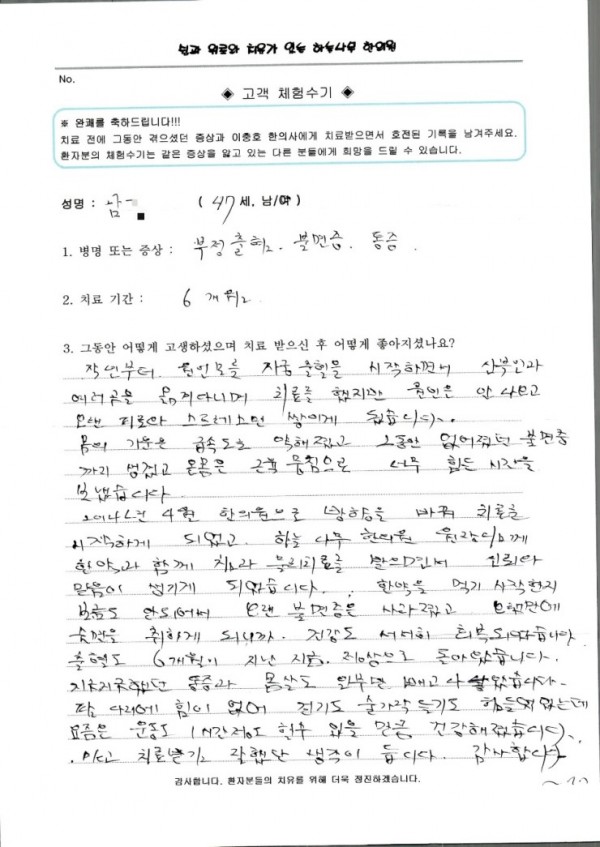 No.
◈ 고객 체험수기 ◈
※ 완쾌를 축하드립니다!!!
치료 전에 그동안 겪으셨던 증상과 이충호 한의사에게 치료받으면서 호전된 기록을 남겨주세요.
환자분의 체험수기는 같은 증상을 앓고 있는 다른 분들에게 희망을 드릴 수 있습니다.
성명 : 남 ( 47 세, 남/여 )
1. 병명 또는 증상 : 부정출혈. 불면증. 통증.
2. 치료 기간 : 6개월
3. 그동안 어떻게 고생하셨으며 치료 받으신 후 어떻게 좋아지셨나요?
작년부터. 원인모를 자궁출혈을 시작하면서 산부인과
여러곳을 옮겨다니며 치료를 했지만 원인은 안 나오고
오랜 피로와 스트레스만 쌓이게 됬습니다.
몸의 기운은 급속도로 약해졌고 그동안 없어졌던 불면증
까지 생겼고 온몸은 근육 뭉침으로 너무 힘든 시간을
보냈습니다.
4월 한의원으로 방향을 바꿔 치료를
시작하게 되었고. 하늘나무한의원 원장님께
한약과 함께 치료과 물리치료를 받으면서 신뢰와
믿음이 생기게 되었습니다. 한약을 먹기 시작한지
보름도 안되어서 오랜 불면증은 사라졌고 오랜만에
숙면을 취하게 되니까. 건강도 서서히 회복되었습니다
출혈도 6개월이 지난 지금. 정상으로 돌아왔습니다.
통증과 몸살도
팔 다리에 힘이 없어 걷기도 숟가락 들기도 힘들었는데
요즘은 운동도 1시간정도 할수 있을 만큼 건강해졌습니다.
치료받기 잘했단 생각이 듭니다. 감사합니다
감사합니다. 환자분들의 치유를 위해 더욱 정진하겠습니다.